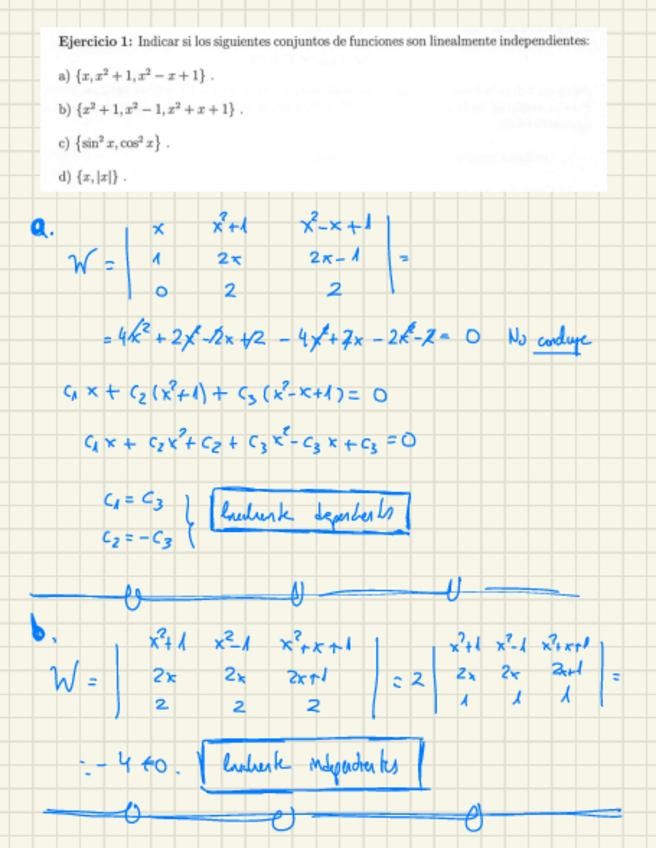 Ejercicio 1: Indicar si los siguientes conjuntos de funciones son linealmente independientes:
a) {x, x² + 1, x² − x + 1} .
b) {x² + 1, x² − 1, x² + x + 1} .
c) {sin² x, cos² x} .
d) {x, |x|} .
a.
x x²+1 x²-x+1
W = 1 2x 2x-1 =
0 2 2
= 4x² + 2x² - 2x + 2 - 4x² + 2x - 2x² - 2 = 0 No conduye
C₁ x + C₂ (x²+1) + C₃ (x²-x+1) = 0
C₁ x + C₂x² + C₂ + C₃ x² - C₃ x + C₃ = 0
C₁ = C₃
C₂ = -C₃
dependientes
b.
x²+1 x²-1 x²+x+1 x²+1 x²-1 x²+x+1
W = 2x 2x 2x+1 = 2 2x 2x 2x+1 =
2 2 2 1 1 1
= -4 ≠ 0. independientes